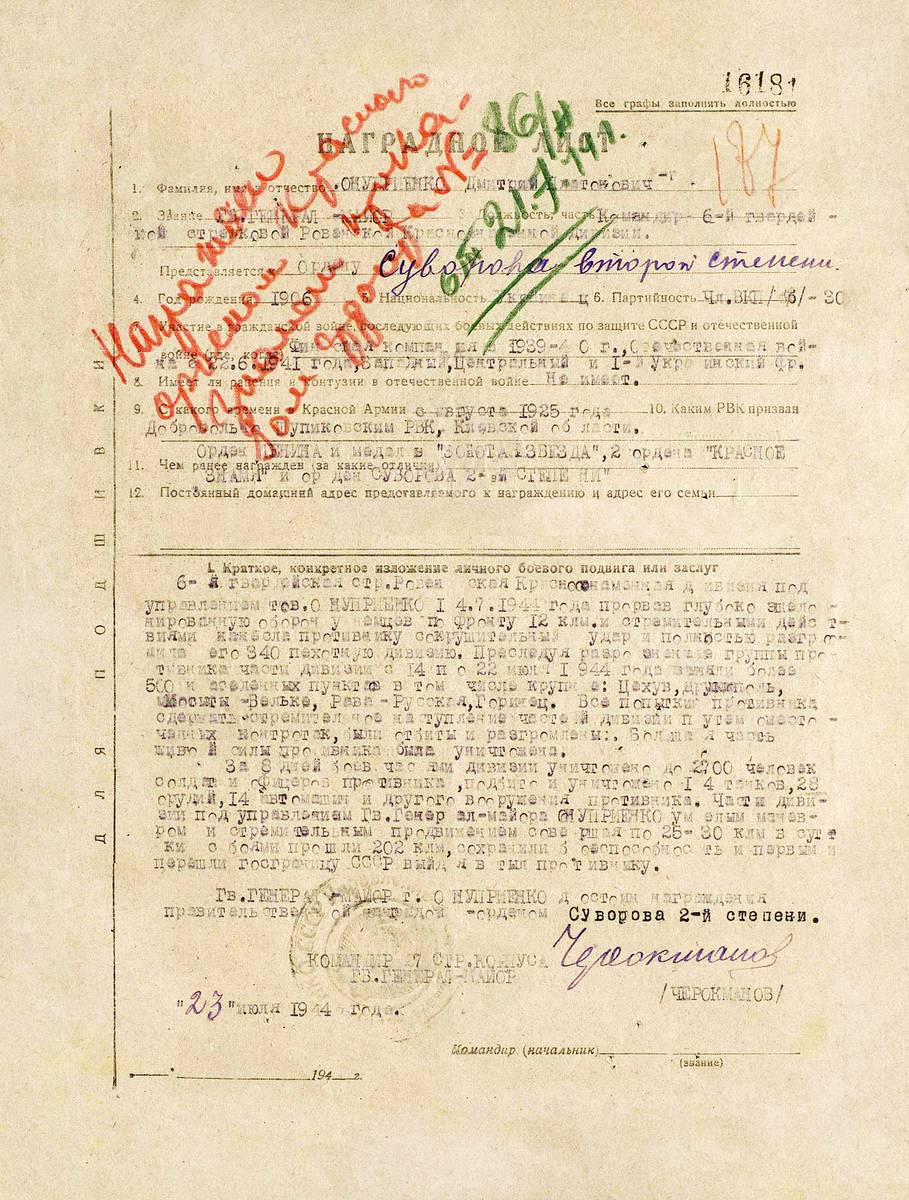 1618
Все графы заполнять полностью
НАГРАДНОЙ ЛИСТ
187
1. Фамилия, имя и отчество ОНУПРИЕНКО Дмитрий
2. Звание ГВ.ГЕНЕРАЛ - МАЙОР 3. Должность, часть Командир 6-й гвардей -
ской стрелковой Ровенской Краснознаменной дивизии.
Представляется к Ордену Суворова второй степени.
4. Год рождения 1906 5. Национальность Украинец 6. Партийность Чл.ВКП/б/-30
Участие в гражданской войне, последующих боевых действиях по защите СССР и отечественной
войне (где, когда) Финская компания в 1939-40 г., Отечественная вой-
на с 22.6.1941 года, Западный, Центральный и 1-й Украинский Фр.
8. Имеет ли ранения и контузии в отечественной войне Не имеет.
9. С какого времени в Красной Армии с августа 1925 года 10. Каким РВК призван
Добровольно РВК, Киевской области.
Орден ЛЕНИНА и медаль "ЗОЛОТАЯ ЗВЕЗДА", 2 ордена "КРАСНОЕ
11. Чем ранее награжден (за какие отличия)
ЗНАМЯ" и орден СУВОРОВА 2-ой СТЕПЕНИ"
12. Постоянный домашний адрес представляемого к награждению и адрес его семьи
Наградить
орденом Красного
Знамени
Приказ № 86/н
21.7.44г.
ДЛЯ ПОДШИВКИ
I. Краткое, конкретное изложение личного боевого подвига или заслуг
6-й гвардейская стр.Ровенская Краснознаменная дивизия под
управлением тов.ОНУПРИЕНКО 14.7.1944 года прорвав глубоко эшело -
нированную оборону у немцев по фронту 12 клм.и стремительными дейст-
виями нанесла противнику сокрушительный удар и полностью разгро-
мила его 340 пехотную дивизию. Преследуя разрозненные группы про-
тивника части дивизии с 14 по 22 июля 1944 года заняли более
500 населенных пунктов в том числе крупные: Цехув, Дружкополь,
Мосьты -Вельке, Рава-Русская, Горинец. Все попытки противника
сдержать стремительное наступление частей дивизии путем ожесто -
ченных контротак, были отбиты и разгромлены. Большая часть
живой силы противника была уничтожена.
За 8 дней боев, частями дивизии уничтожено до 2700 человек
солдат и офицеров противника, подбито и уничтожено 14 танков, 28
орудий, 14 автомашин и другого вооружения противника. Части диви-
зии под управлением Гв.Генерал-майора ОНУПРИЕНКО умелым манев-
ром и стремительным продвижением совершая по 25-30 клм в сут-
ки с боями прошли 202 клм, сохранили боеспособность и первыми
перешли госграницу СССР выйдя в тыл противнику.
Гв.ГЕНЕРАЛ -МАЙОР т. ОНУПРИЕНКО достоин награждения
правительственной наградой -орденом Суворова 2-й степени.
КОМАНДИР 27 СТР.КОРПУСА
ГВ.ГЕНЕРАЛ-МАЙОР
Черокманов
/ЧЕРОКМАНОВ/
"23" июля 1944 года.
Командир (начальник)
(звание)
194 г.